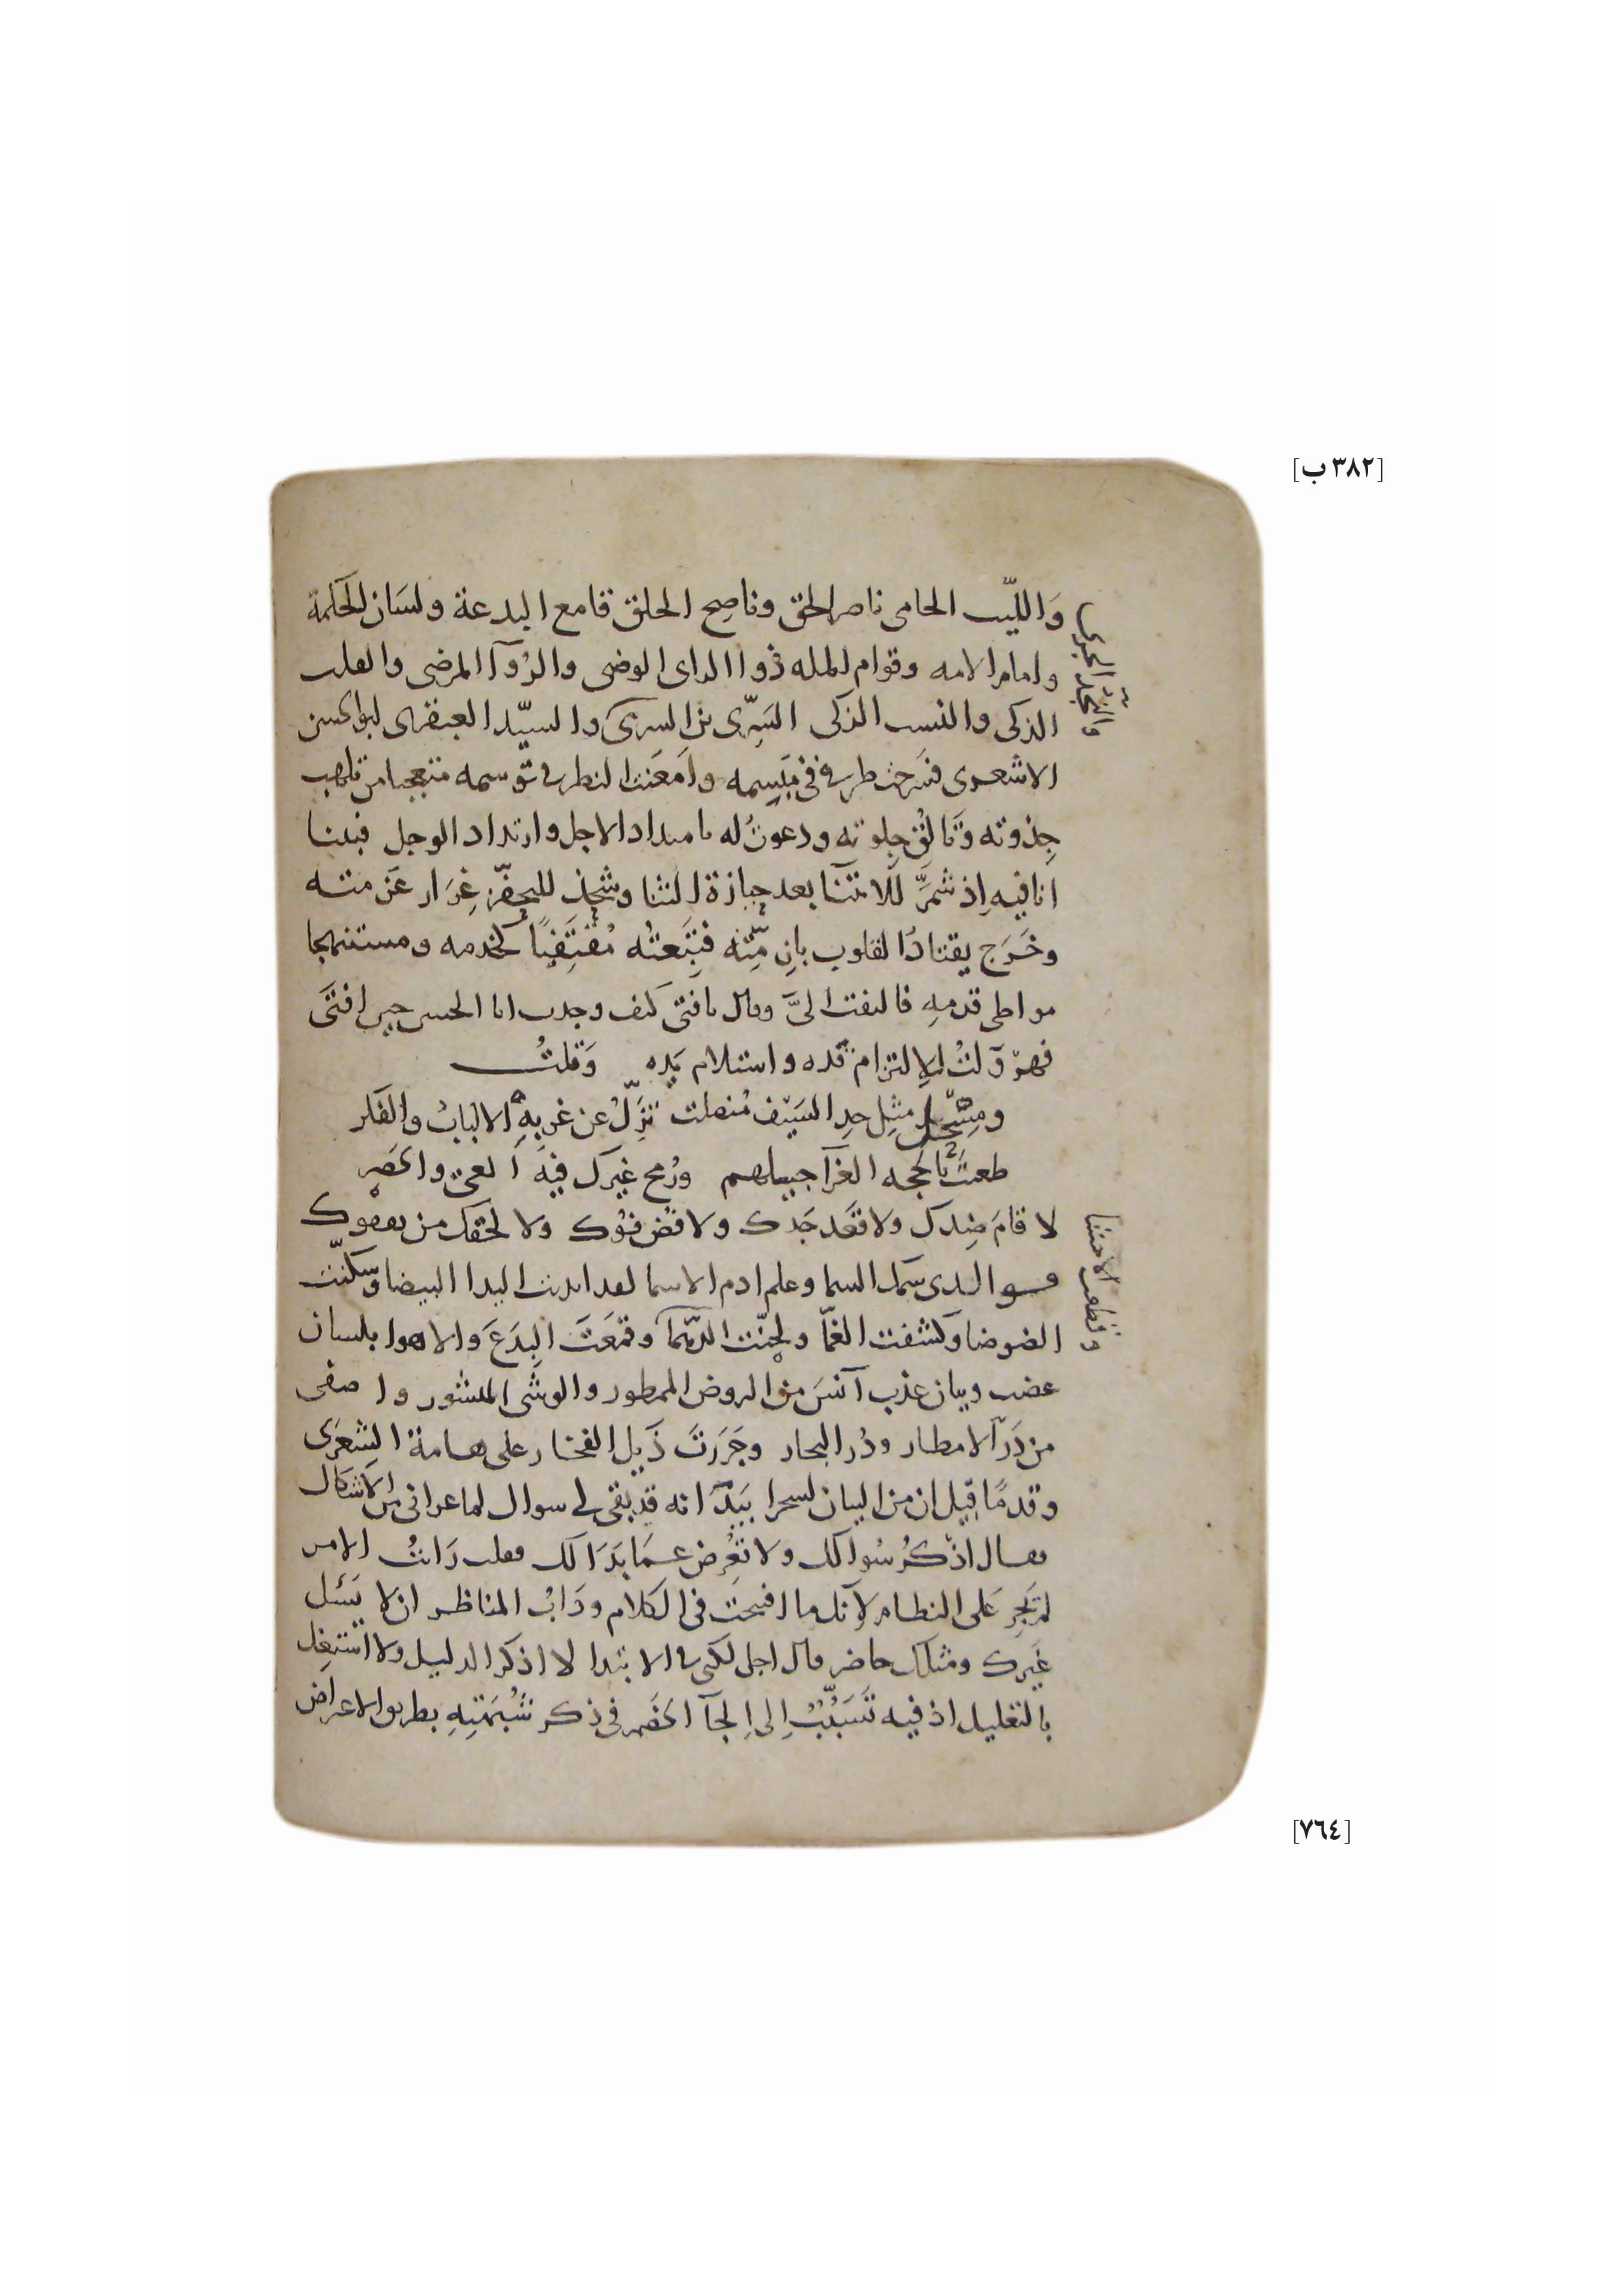 [٣٨٢ ب]
وَاللّيث الحامى ناصر الحق وناصِح الخلق قامع البدعة ولسَان الحكمة
وامام الامه وقوام المله ذو الراى الوضى والرُوآ المرضى والقلب
الذكى والنسب الزكى السَرِّى بن السرى والسيّد العبقرى ابو الحسن
الاشعرى فسَرحت طرفى فى مَيسِمه وامعَنت النظر فى توسمه متعجبا من تلهب
جِذوته وتَالُق جلوته ودعوتُ له بامتداد الاجل وارتداد الوجل فبينا
انا فيه اِذ شمَّر للانثنا بعد حيازة الثنا وشحذ للتحفّز غِرَار عَزمته
وخَرَج يقتاد القلوب بازِمّته فتَبِعتُه مُقتَفِيًا لخدمه ومستنهجا
مواطى قدمهِ فالتفت الىَّ وقال يا فتى كيف وجدت ابا الحسن حين افتَى
فهروَلتُ لاِلتزام قده واستلام يَده وَقلتُ
ومِسْحَل مثلِ حدِ السَيف مُنصلت تزِلُّ عن غربهِ الالبابُ والفكر
طعنتَ بالحجه الغرّآ جيلهم ورُمح غيرك فيهَ العى والحَصَر
لا قامَ ضِدك ولا قعَد جَدك ولا فُضّ فوُك ولا لحقك من يقفوك
فوالذى سمك السما وعلم ادم الاسما لقد ابديت اليد البيضا وسكنّت
الضوضا وكشفت الغمّا ولحنّت الدهما وقمَعتَ البِدَعَ والاهوا بلسان
عضب وبيان عذب آنسَ من الروض الممطور والوشى المنشور واصفى
من دَرّ الامطار ودُر البحار وجَرَرتَ ذَيل الفخار على هامة الشِعرَى
وقدمًا قيل ان من البيان لسحرا بَيدَ انه قد بقى لى سوال لما عرانى من الاشكال
فقال اذكُر سُوالك ولا تعرِض عَما بَدَا لك فقلت رَايتُ الامر
لم يَجرِ على النظام لانك ما افتحت فى الكلام ودَابُ المناظر ان لا يَسئل
غَيرك ومثلك حاضر قال اجل لكنى فى الابتدا لا اذكر الدليل ولا اشتغل
بالتعليل اذ فيه تَسَبُّبٌ اِلى اِلجآ الخصم فى ذكر شُبهَتِهِ بطريق الاعراض
وقطعت الاحشا
[٧٦٤]